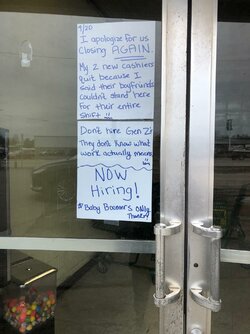 4/20
I apologize for us
Closing AGAIN.
My 2 new cashiers
quit because I
said their boyfriends
couldn't stand here
for their entire
shift
Don't hire Gen Z's
They don't know what
work actually means
NOW
Hiring!
Baby Boomers ONLY
Thanks!